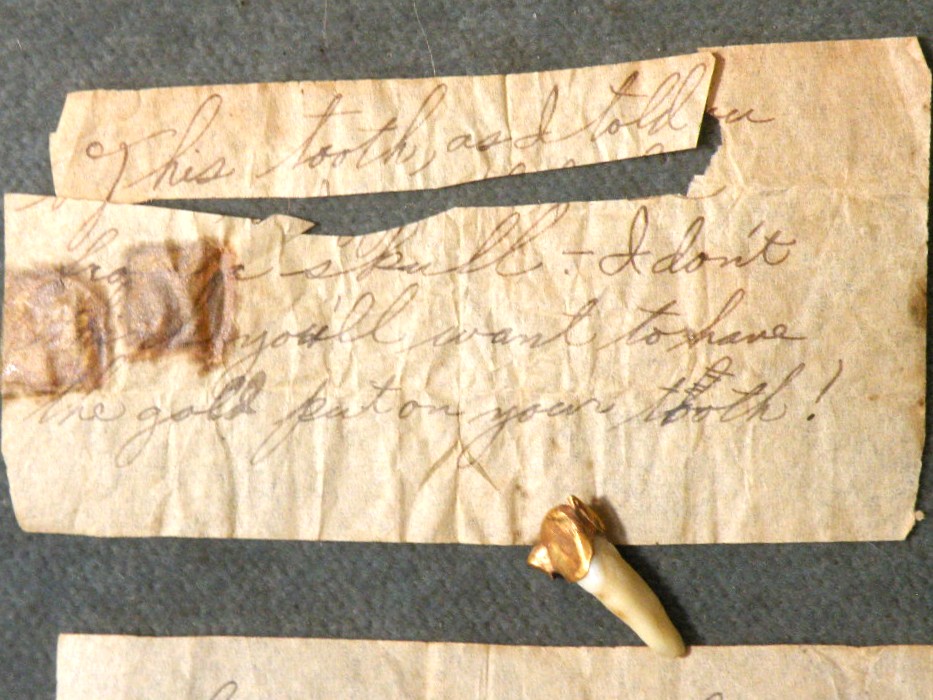 This tooth, as I told u
skull - I don't
you'll want to have
the gold put on your tooth!